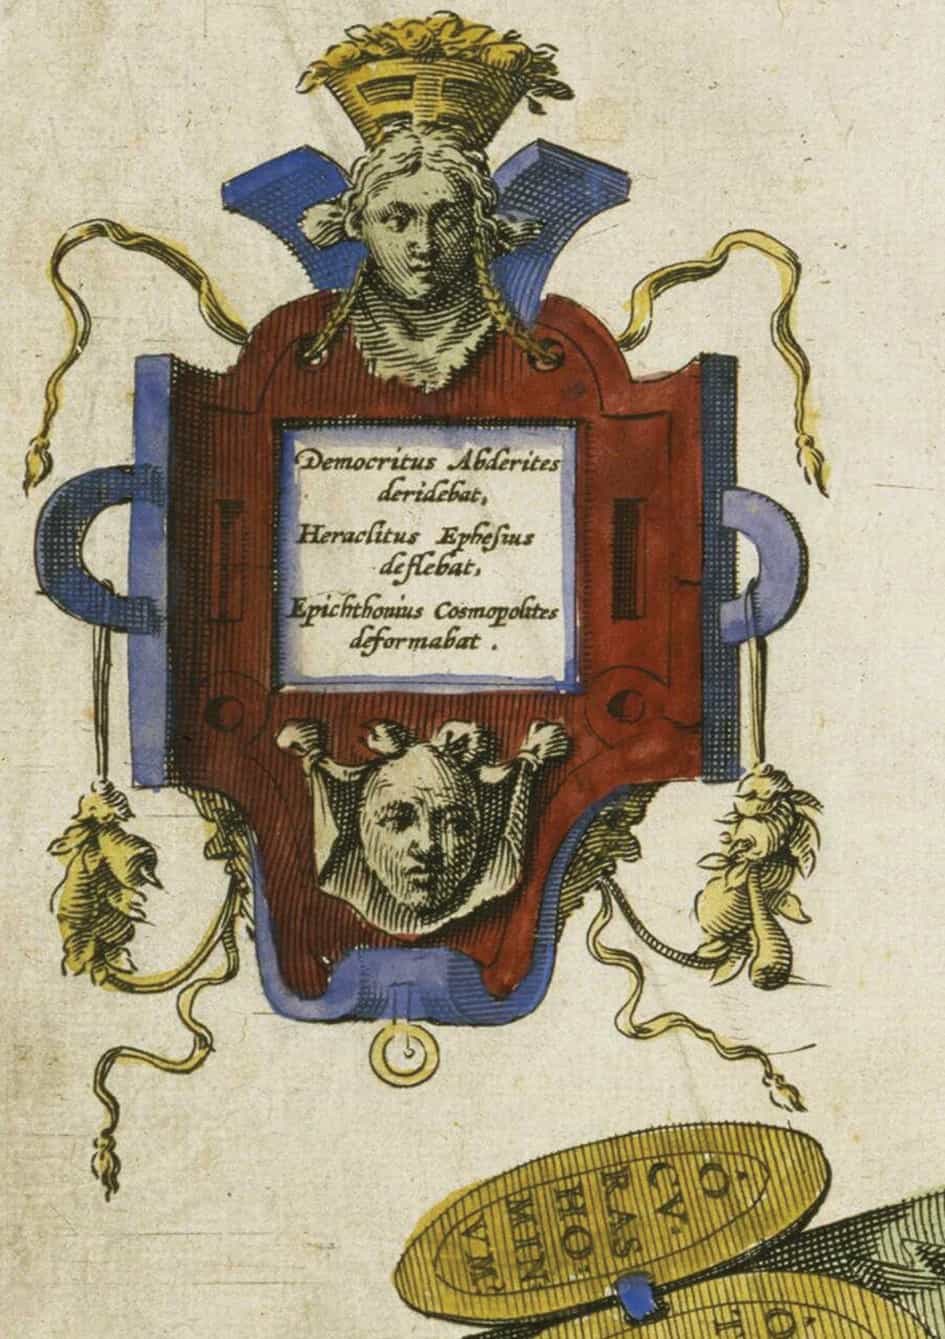 Democritus Abderites
deridebat,
Heraclitus Ephesius
deflebat,
Epichthonius Cosmopolites
deformabat .
O
CV.
RAS
HO:
MIN
VM.